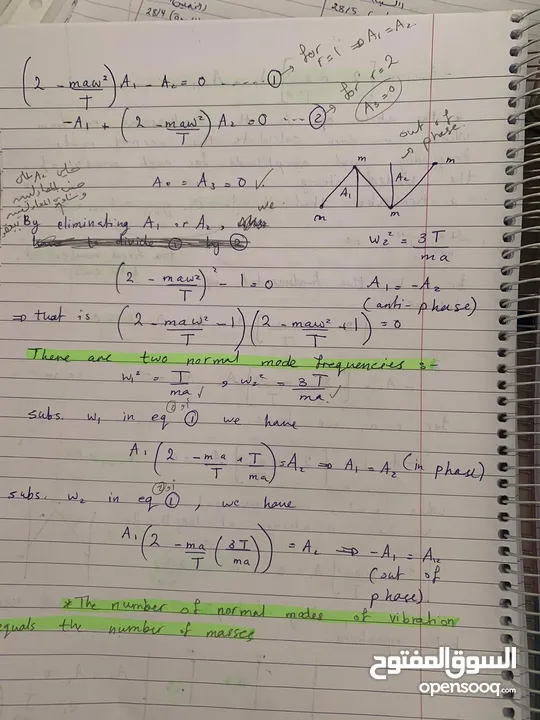 28/4
28/5
(2 - maω²/T) A₁ - A₂ = 0 ...... ① → for r=1 ⇒ A₁ = A₂
-A₁ + (2 - maω²/T) A₂ = 0 ... ② → for r=2
A₃ = 0
out of phase
A₀ = A₃ = 0 ✓
m
m
m
m
A₁
A₂
By eliminating A₁ or A₂, we
to divide ① by ②
ω₂² = 3T/ma
(2 - maω²/T)² - 1 = 0
A₁ = -A₂
(anti-phase)
⇒ that is (2 - maω²/T - 1)(2 - maω²/T + 1) = 0
There are two normal mode frequencies :-
ω₁² = T/ma ✓, ω₂² = 3T/ma ✓
subs. ω₁ in eq ① we have
A₁ (2 - ma/T * T/ma) = A₂ ⇒ A₁ = A₂ (in phase)
subs. ω₂ in eq ①, we have
A₁ (2 - ma/T (3T/ma)) = A₂ ⇒ -A₁ = A₂
(out of phase)
* The number of normal modes of vibration
equals the number of masses
السوق المفتوح
opensooq.com